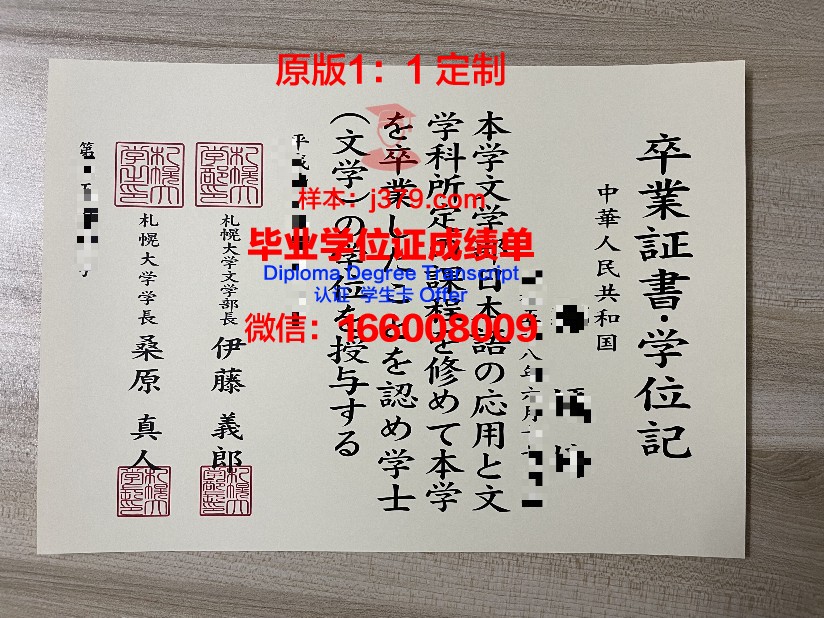 原版1：1 定制
样本：j379.com
毕业学位证成绩单
Diploma Degree Transcript
认证 学生卡 Offer
微信：166008009
卒業証書・学位記
中華人民共和国
八年六月十
本学文学部日本語の応用と文
学科所定の課程を修めて本学
を卒業したことを認め学士
(文学)の学位を授与する
平成
札幌大学文学部長 伊藤義郎
札幌大学学長 桑原真人
第